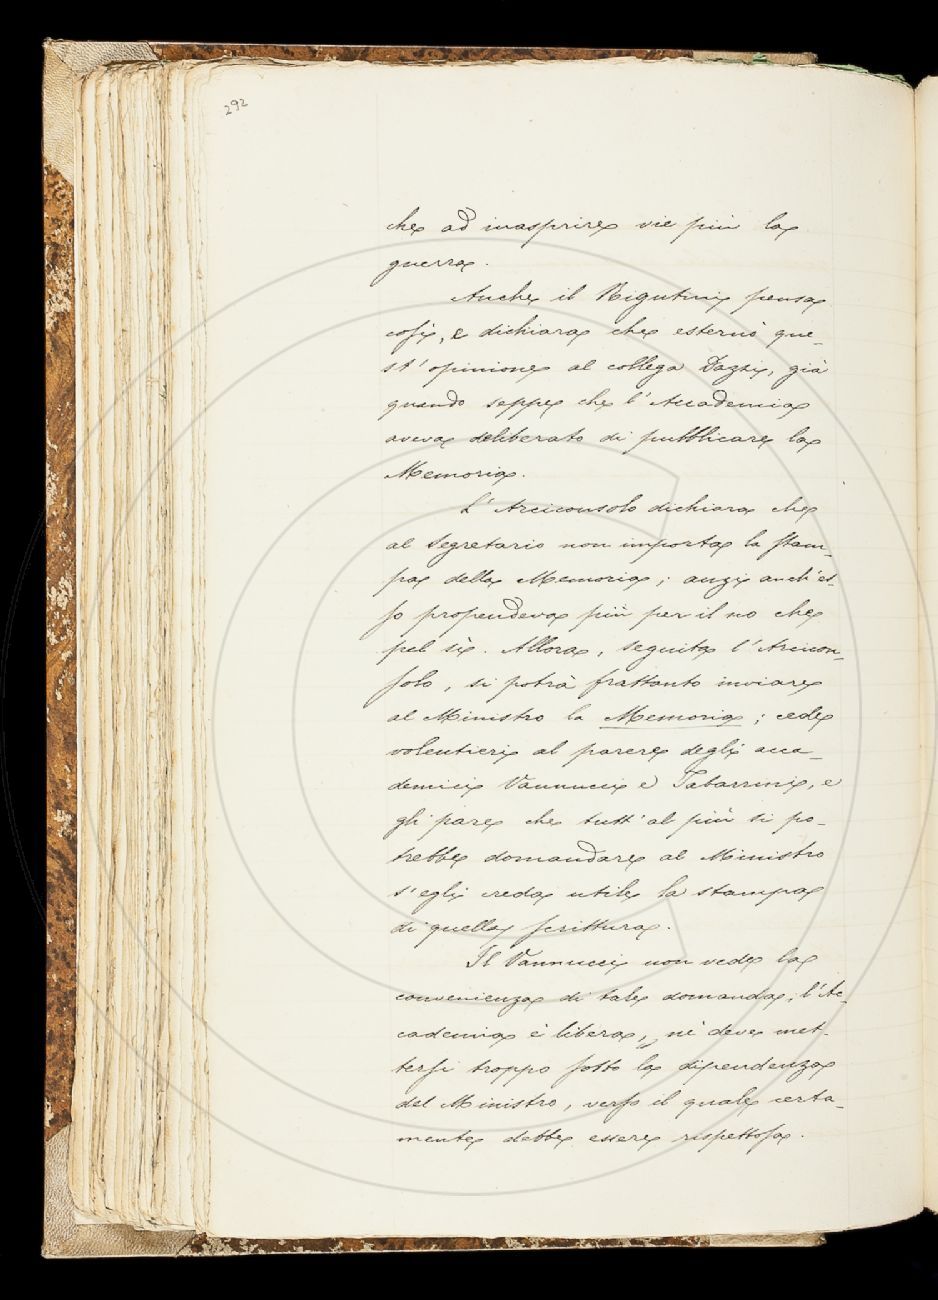 292
che ad inasprire vie più la
guerra.
Anche il Rigutini pensa
così, e dichiara che esternò que-
st'opinione al collega Dazzi, già
quando seppe che l'Accademia
aveva deliberato di pubblicare la
Memoria.
L'Arciconsolo dichiara che
al Segretario non importa la stam-
pa della Memoria; anzi anch'es-
so propendeva più per il no che
pel sì. Allora, seguita l'Arcicon-
solo, si potrà frattanto inviare
al Ministro la Memoria; cede
volentieri al parere degli acca-
demici Vannucci e Tabarrini, e
gli pare che tutt'al più si po-
trebbe domandare al Ministro
s'egli creda utile la stampa
di quella scrittura.
Il Vannucci non vede la
convenienza di tale domanda; l'Ac-
cademia è libera, nè deve met-
tersi troppo sotto la dipendenza
del Ministro, verso il quale certa-
mente debbe essere rispettosa.